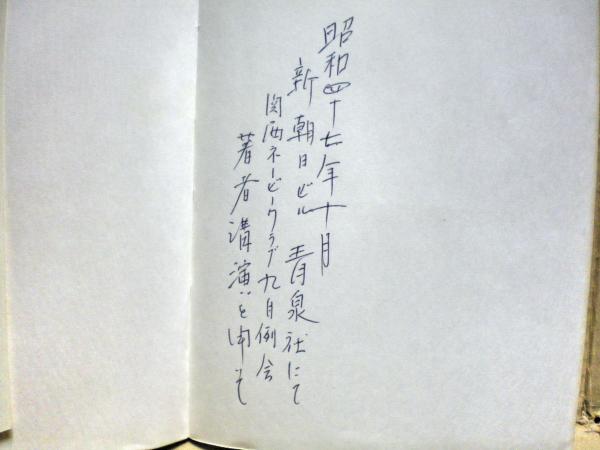 昭和四十七年十月
新朝日ビル 青泉社にて
関西ネービークラブ九月例会
著者講演を聞きて